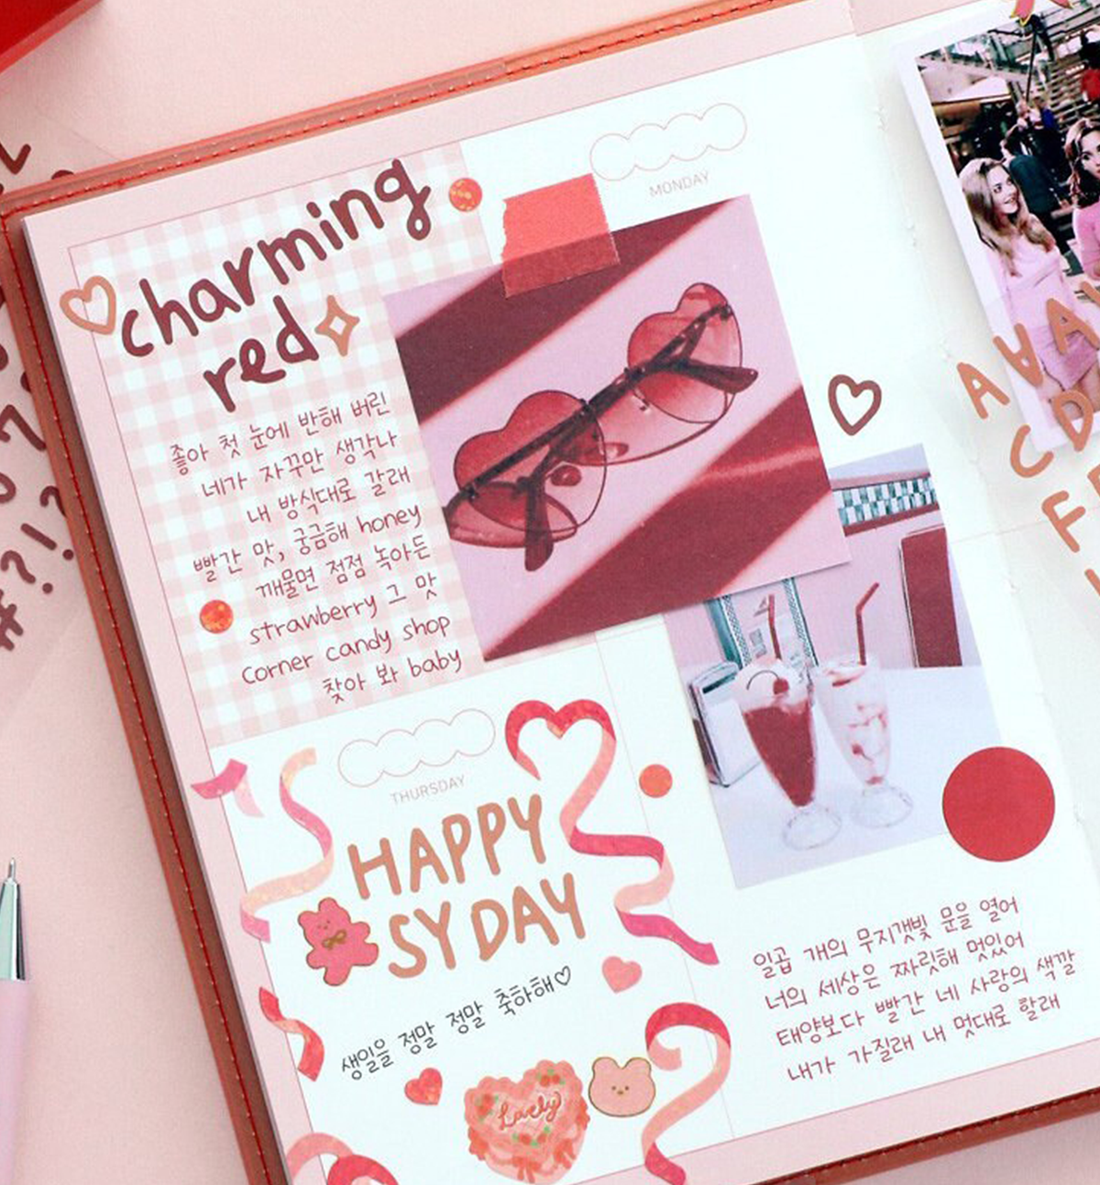 MONDAY
charming
red
좋아 첫 눈에 반해 버린
네가 자꾸만 생각나
내 방식대로 갈래
빨간 맛, 궁금해 honey
깨물면 점점 녹아든
strawberry 그 맛
corner candy shop
찾아 봐 baby
THURSDAY
HAPPY
SY DAY
생일을 정말 정말 축하해♡
Lovely
일곱 개의 무지갯빛 문을 열어
너의 세상은 짜릿해 멋있어
태양보다 빨간 네 사랑의 색깔
내가 가질래 내 멋대로 할래
#?!?